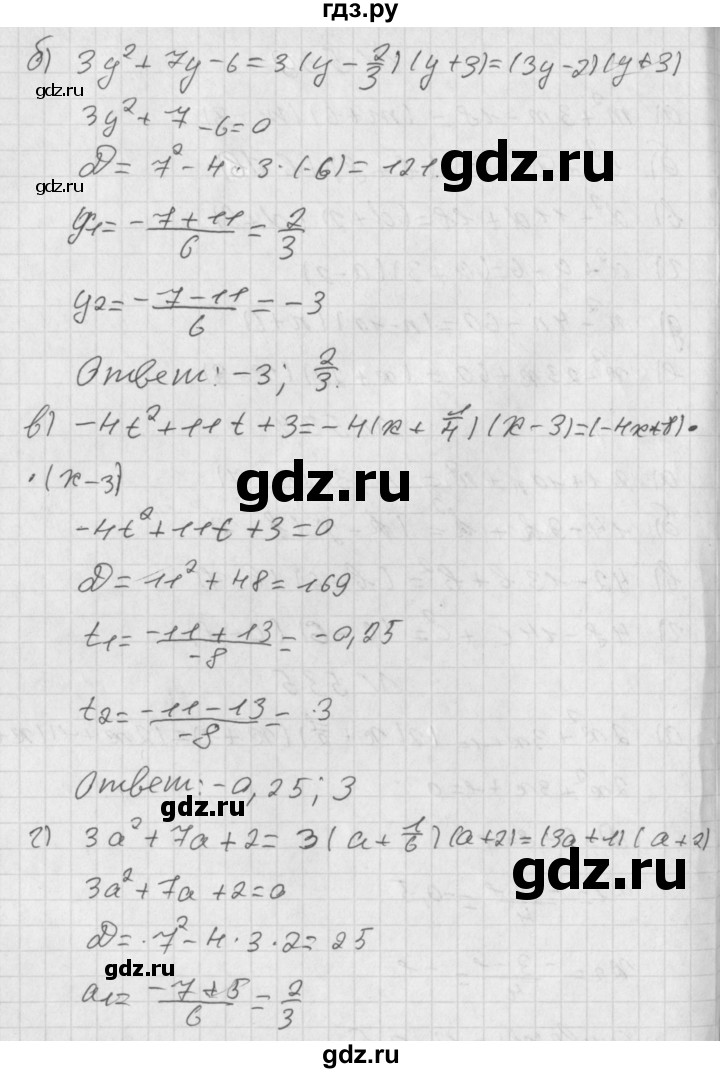 гдз.ру
б) 3y² + 7y - 6 = 3(y - 2/3)(y + 3) = (3y - 2)(y + 3)
gdz.ru
3y² + 7 - 6 = 0
D = 7² - 4 · 3 · (-6) = 121.
gdz.ru
y₁ = (-7 + 11)/6 = 2/3
gdz.ru
y₂ = (-7 - 11)/6 = -3
Ответ: -3; 2/3.
gdz.ru
в) -4t² + 11t + 3 = -4(x + 1/4)(x - 3) = (-4x + 8) ·
· (x - 3)
gdz.ru
-4t² + 11t + 3 = 0
gdz.ru
D = 11² + 48 = 169
t₁ = (-11 + 13)/(-8) = -0,25
gdz.ru
t₂ = (-11 - 13)/(-8) = 3
Ответ: -0,25; 3
gdz.ru
г) 3a² + 7a + 2 = 3(a + 1/6)(a + 2) = (3a + 1)(a + 2)
gdz.ru
3a² + 7a + 2 = 0
gdz.ru
D = 7² - 4 · 3 · 2 = 25
gdz.ru
a₁ = (-7 + 5)/6 = 2/3
gdz.ru
gdz.ru